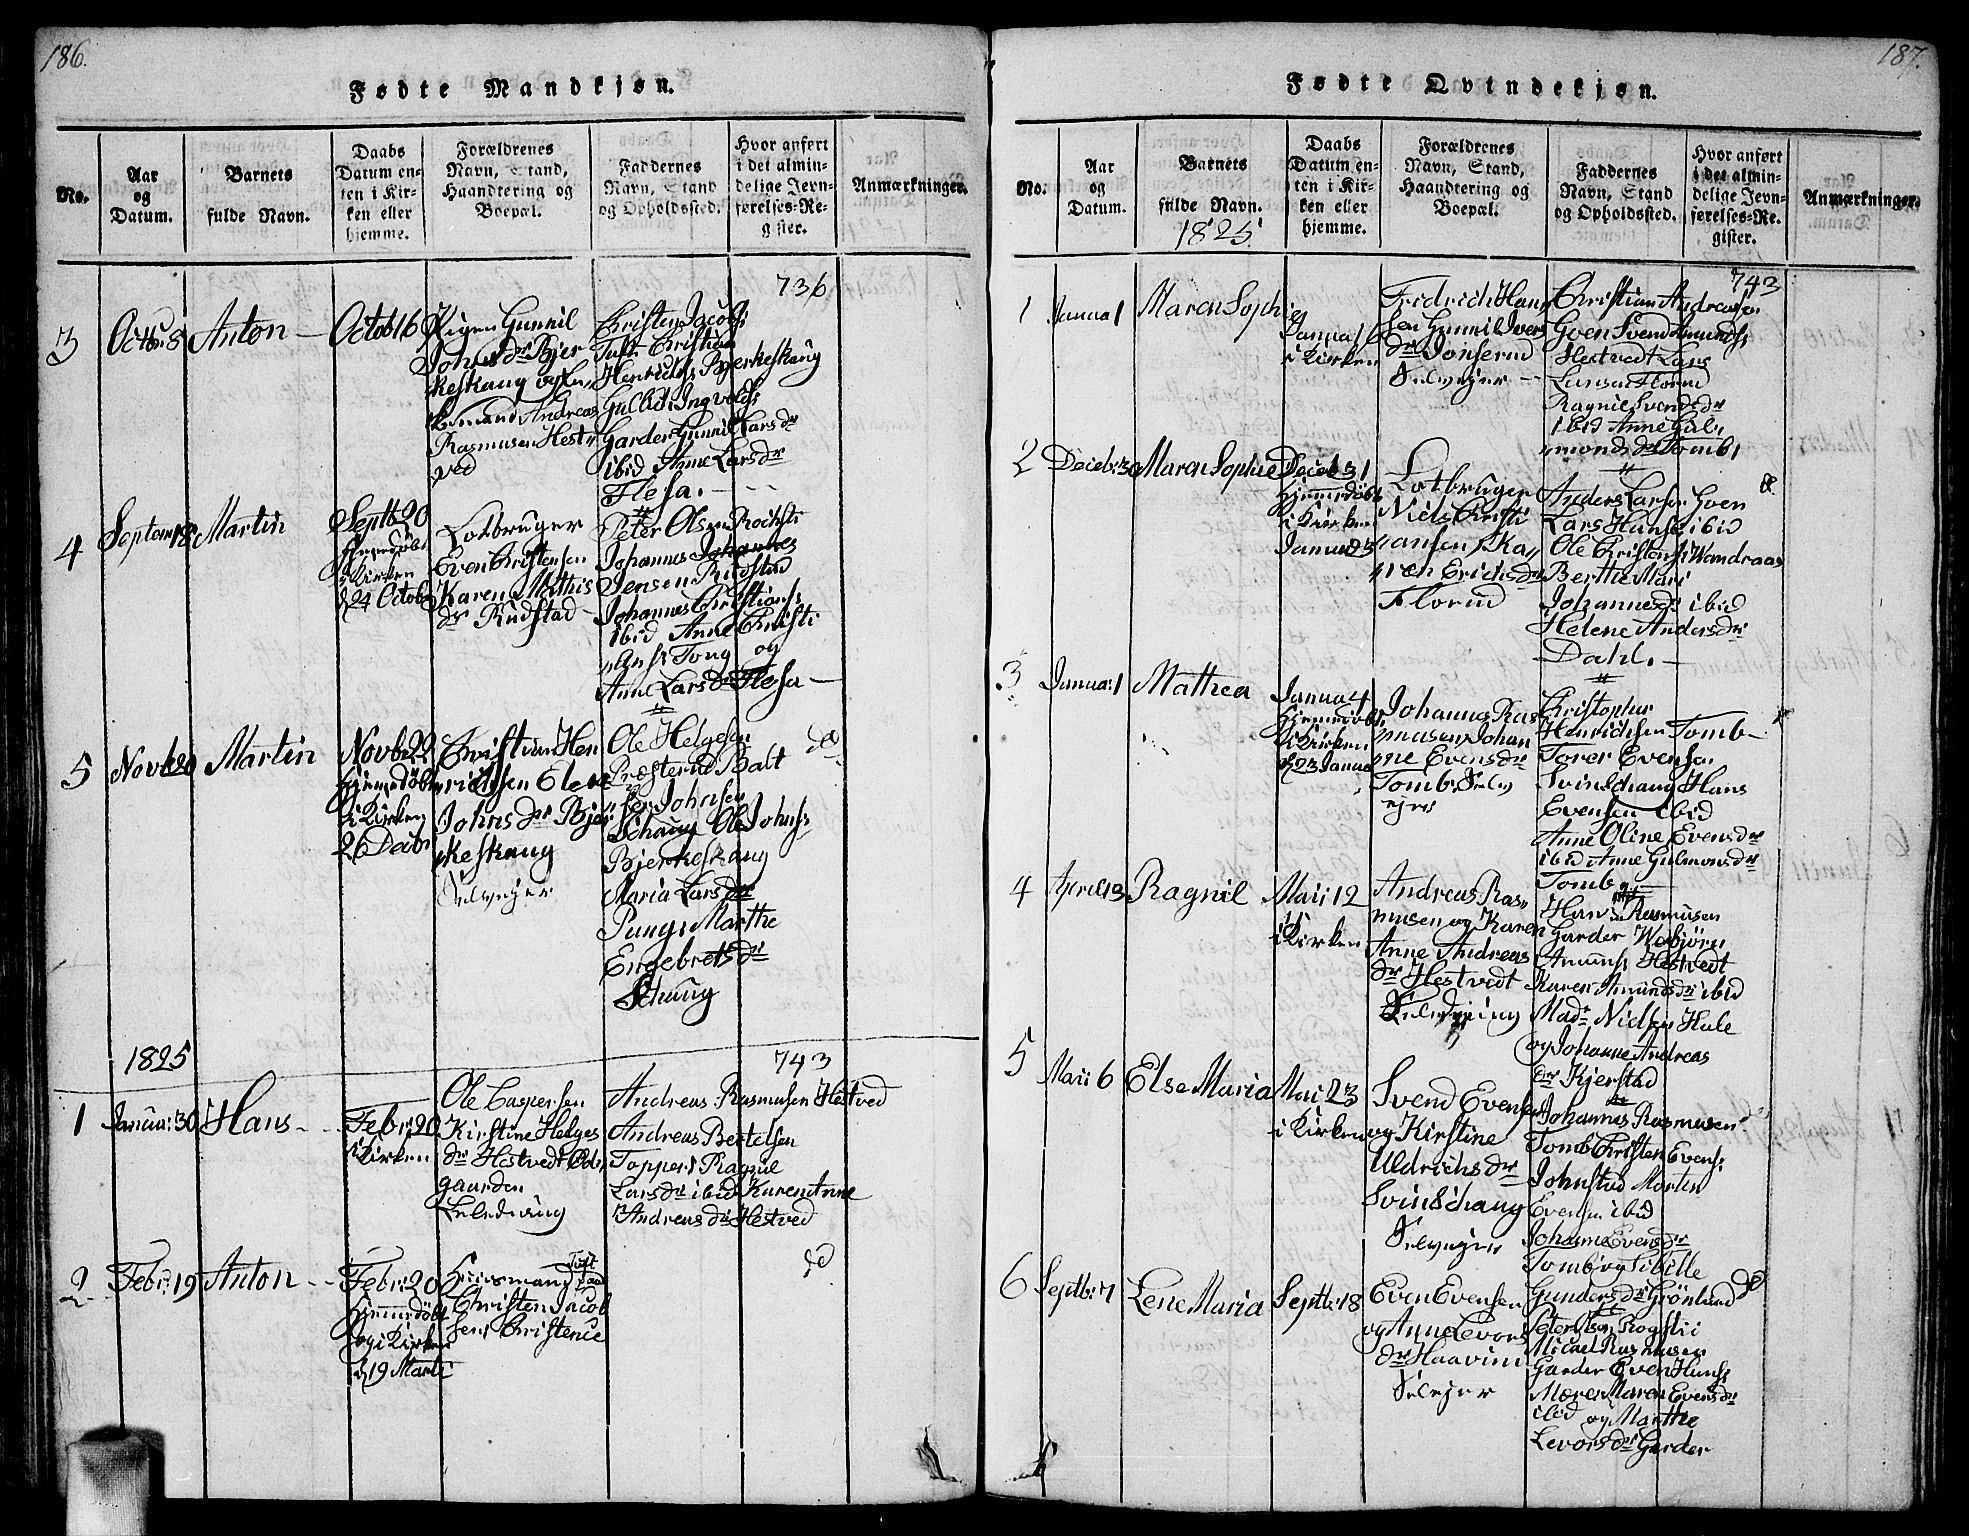 186.
Fødte Mandkjøn.
No.
Aar
og
Datum.
Barnets
fulde Navn.
Daabs
Datum en-
ten i Kir-
ken eller
hjemme.
Forældrenes
Navn, Stand,
Haandtering og
Boepæl.
Faddernes
Navn, Stand
og Opholdssted.
Hvor anført
i det almin-
delige Jevn-
førelses-Re-
gister.
Anmærkninger.
736
3
Anton
Octob 16
Pigen Gunnil
Johns dr Bjer
keskaug
Andreas
Rasmusen Hest
ved
Christen Jacobs
Tuft Christian
Henrichs Bjerkeskaug
Gulbr Ingvolds
Garder Gunnil Lars dr
ibid Anne Lars dr
Flesa.
4
Septem 18
Martin
Septb 20
Hjemedøbt
i Kirken
d 24 Octob
Lotbruger
Even Christensen
Karen Mathis
dr Rudstad
Peter Olsen
Johannes
Jensen Rudstad
Johannes Christians
ibid Anne Christi
ans Tong og
Anne Lars dr Flesa
5
Novb 20
Martin
Novb 22
Hjemedøbt
i Kirken
26 Decb
Christian Hen
richsen Elen
Johns dr Bjer
keskaug
Selvejer
Ole Helgesen
Præsterud Balt
ser Johnsen
Schaug Ole Johns
Bjerkeskaug
Maria Lars dr
Pung Marthe
Engebrets dr
Schaug
do
1825
743
1
Janua: 30
Hans
Febr: 20
i Kirken
Ole Caspersen
Kirstine Helges
dr Hestvedt Øde
gaarden
Andreas Rasmusen Hestved
Andreas Bertelsen
Topper Ragnil
Lars dr ibid Karen Anne
Andreas dr Hestved
2
Febr: 19
Anton
Febr: 20
Hjemedøbt
og i Kirken
d 19 Marti
Huusmand
Tuft
Christen Jacob
sen Christence
do
187.
Fødte Qvindekjøn.
No.
Aar
og
Datum.
Barnets
fulde Navn.
1825
Daabs
Datum en-
ten i Kir-
ken eller
hjemme.
Forældrenes
Navn, Stand,
Haandtering og
Boepæl.
Faddernes
Navn, Stand
og Opholdssted.
Hvor anført
i det almin-
delige Jevn-
førelses-Re-
gister.
Anmærkninger.
743
1
Janua 1
Maren Sophie
Janua 16
i Kirken
Fridrich Han
sen Gunnil Ivers
dr Jonserud
Selvejer
Christian Andreasen
Gven Svend Amunds
Hestvedt Lars
Larsen Florud
Ragnil Svends dr
ibid Anne Gul
monds dr Tomb
2
Decb: 30
Maren Sophie
Decb 31
Hjemedøbt
i Kirken
Lotbruger
Niels Christi
ansen Ka
ren Erichs dr
Florud
Anders Larsen Gven
Lars Hansen ibid
Ole Christens Wandraas
Berthe Mari
Johannes dr ibid
Helene Anders dr
Dahl.
do
3
Janua: 1
Mathea
Janua 4
Hjemedøbt
i Kirken
d 23 Janua
Johannes Ras
musen Johan
ne Evens dr
Tomb Selv
ejer
Christopher
Henrichsen Tomb
Torer Evensen
Svinschaug Hans
Evensen ibid
Anne Oline Evens dr
ibid Anne Gulmons dr
Tomb
4
April 13
Ragnil
Maii 12
i Kirken
Andreas Ras
musen og Karen
Anne Andreas
dr Hestvedt
Hans Rasmusen
Garder Webjørn
Amunds Hestvedt
Karen Amunds dr ibid
Mad. Nielsen Hale
og Johanne Andreas
dr Kjerstad
5
Maii 6
Else Maria
Mai: 23
i Kirken
Svend Evensen
og Kirstine
Uldrichs dr
Svinschaug
Selvejer
Johannes Rasmusen
Tomb Christen Evens
Johnstad Morten
Evensen ibid
Johanne Evens dr
Tomb og Sibille
Gunders dr Grønlund
6
Septb: 7
Lene Maria
Septb: 18
Even Evensen
og Anne Levors
dr Haavim
Selvejer
Peter Olsen
Micael Rasmusen
Garder Even Hans
Mæren Maren Evens dr
ibid og Marthe
Levors dr Garder
do